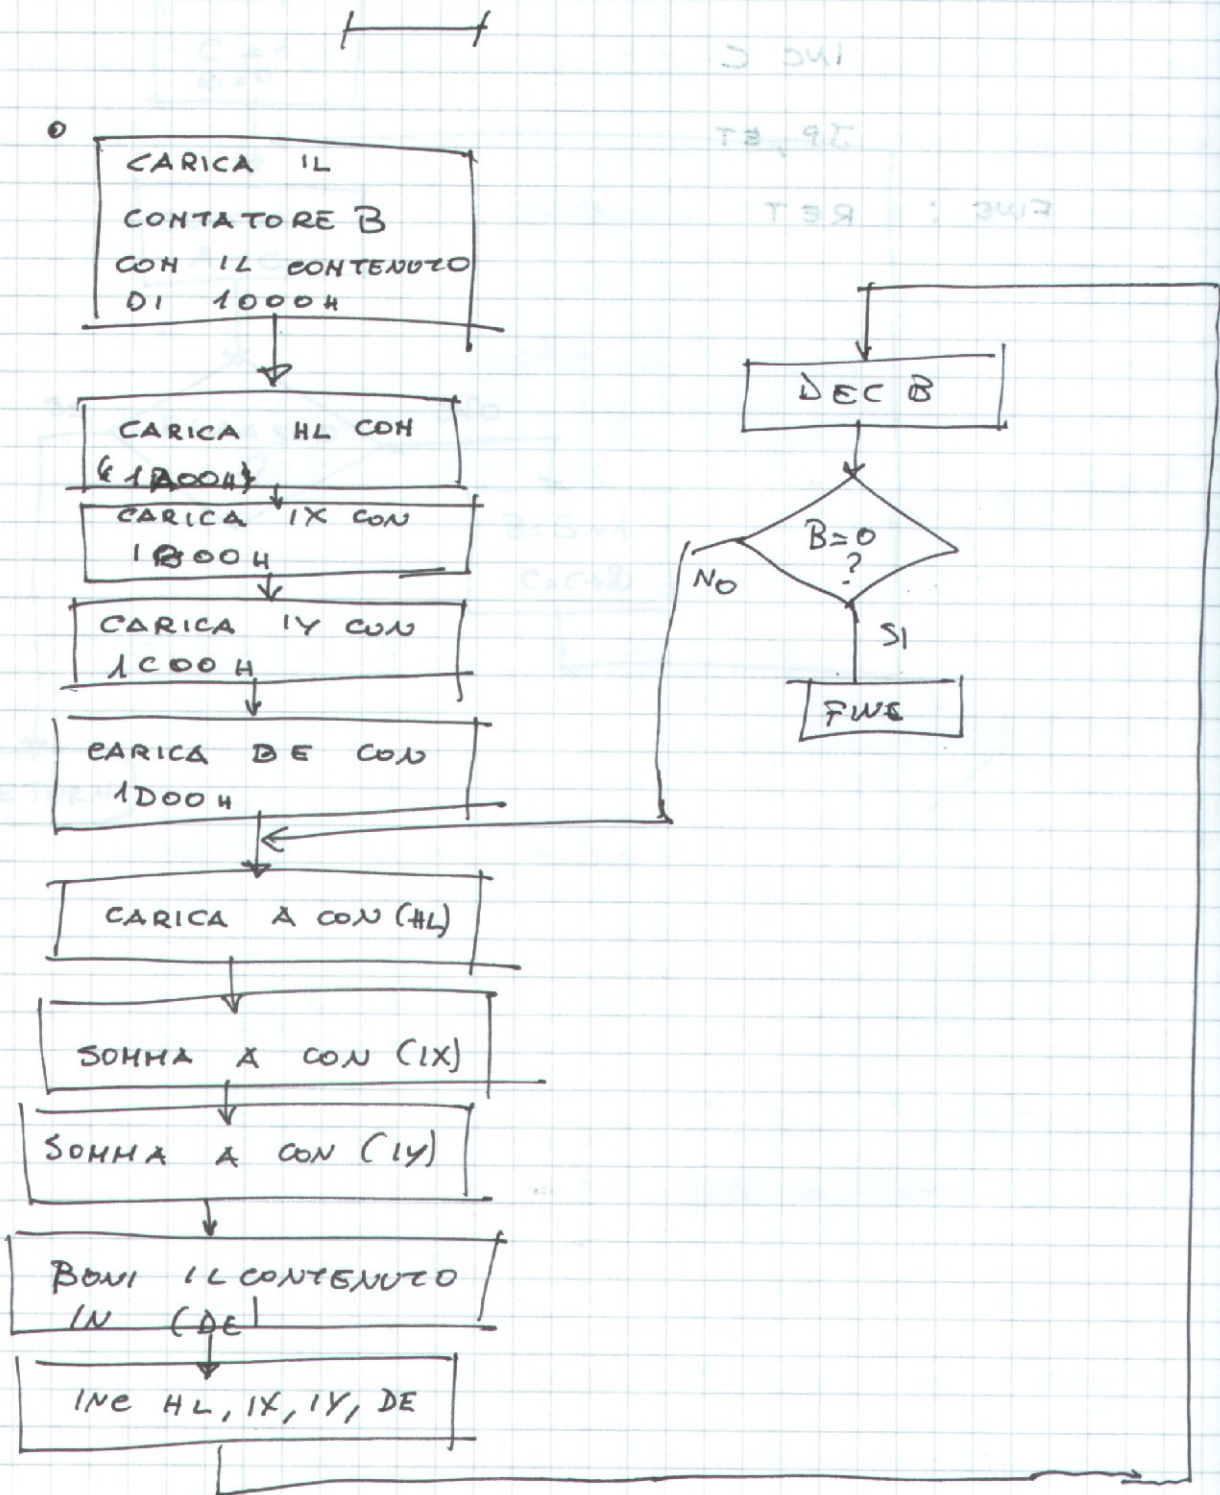 CARICA IL
CONTATORE B
CON IL CONTENUTO
DI 1000H
CARICA HL CON
(1A00H)
CARICA IX CON
1B00H
CARICA IY CON
1C00H
CARICA DE CON
1D00H
CARICA A CON (HL)
SOMMA A CON (IX)
SOMMA A CON (IY)
PONI IL CONTENUTO
IN (DE)
INC HL, IX, IY, DE
DEC B
B=0
?
NO
SI
FINE
INC C
JP, ET
FINE : RET